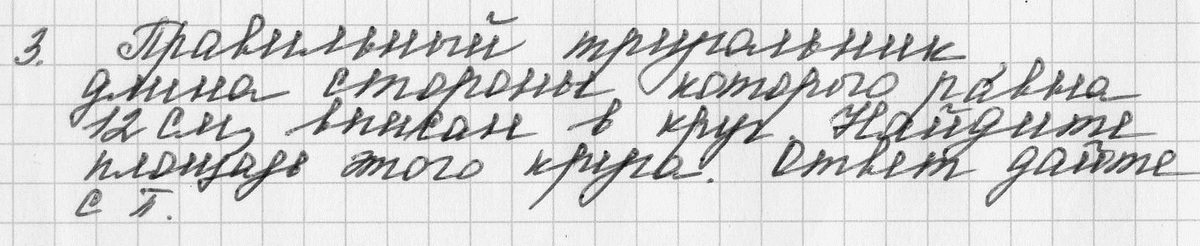 3. Правильный тругольник
длина стороны которого равна
12 см, вписан в круг. Найдите
площадь этого круга. Ответ дайте
с π.